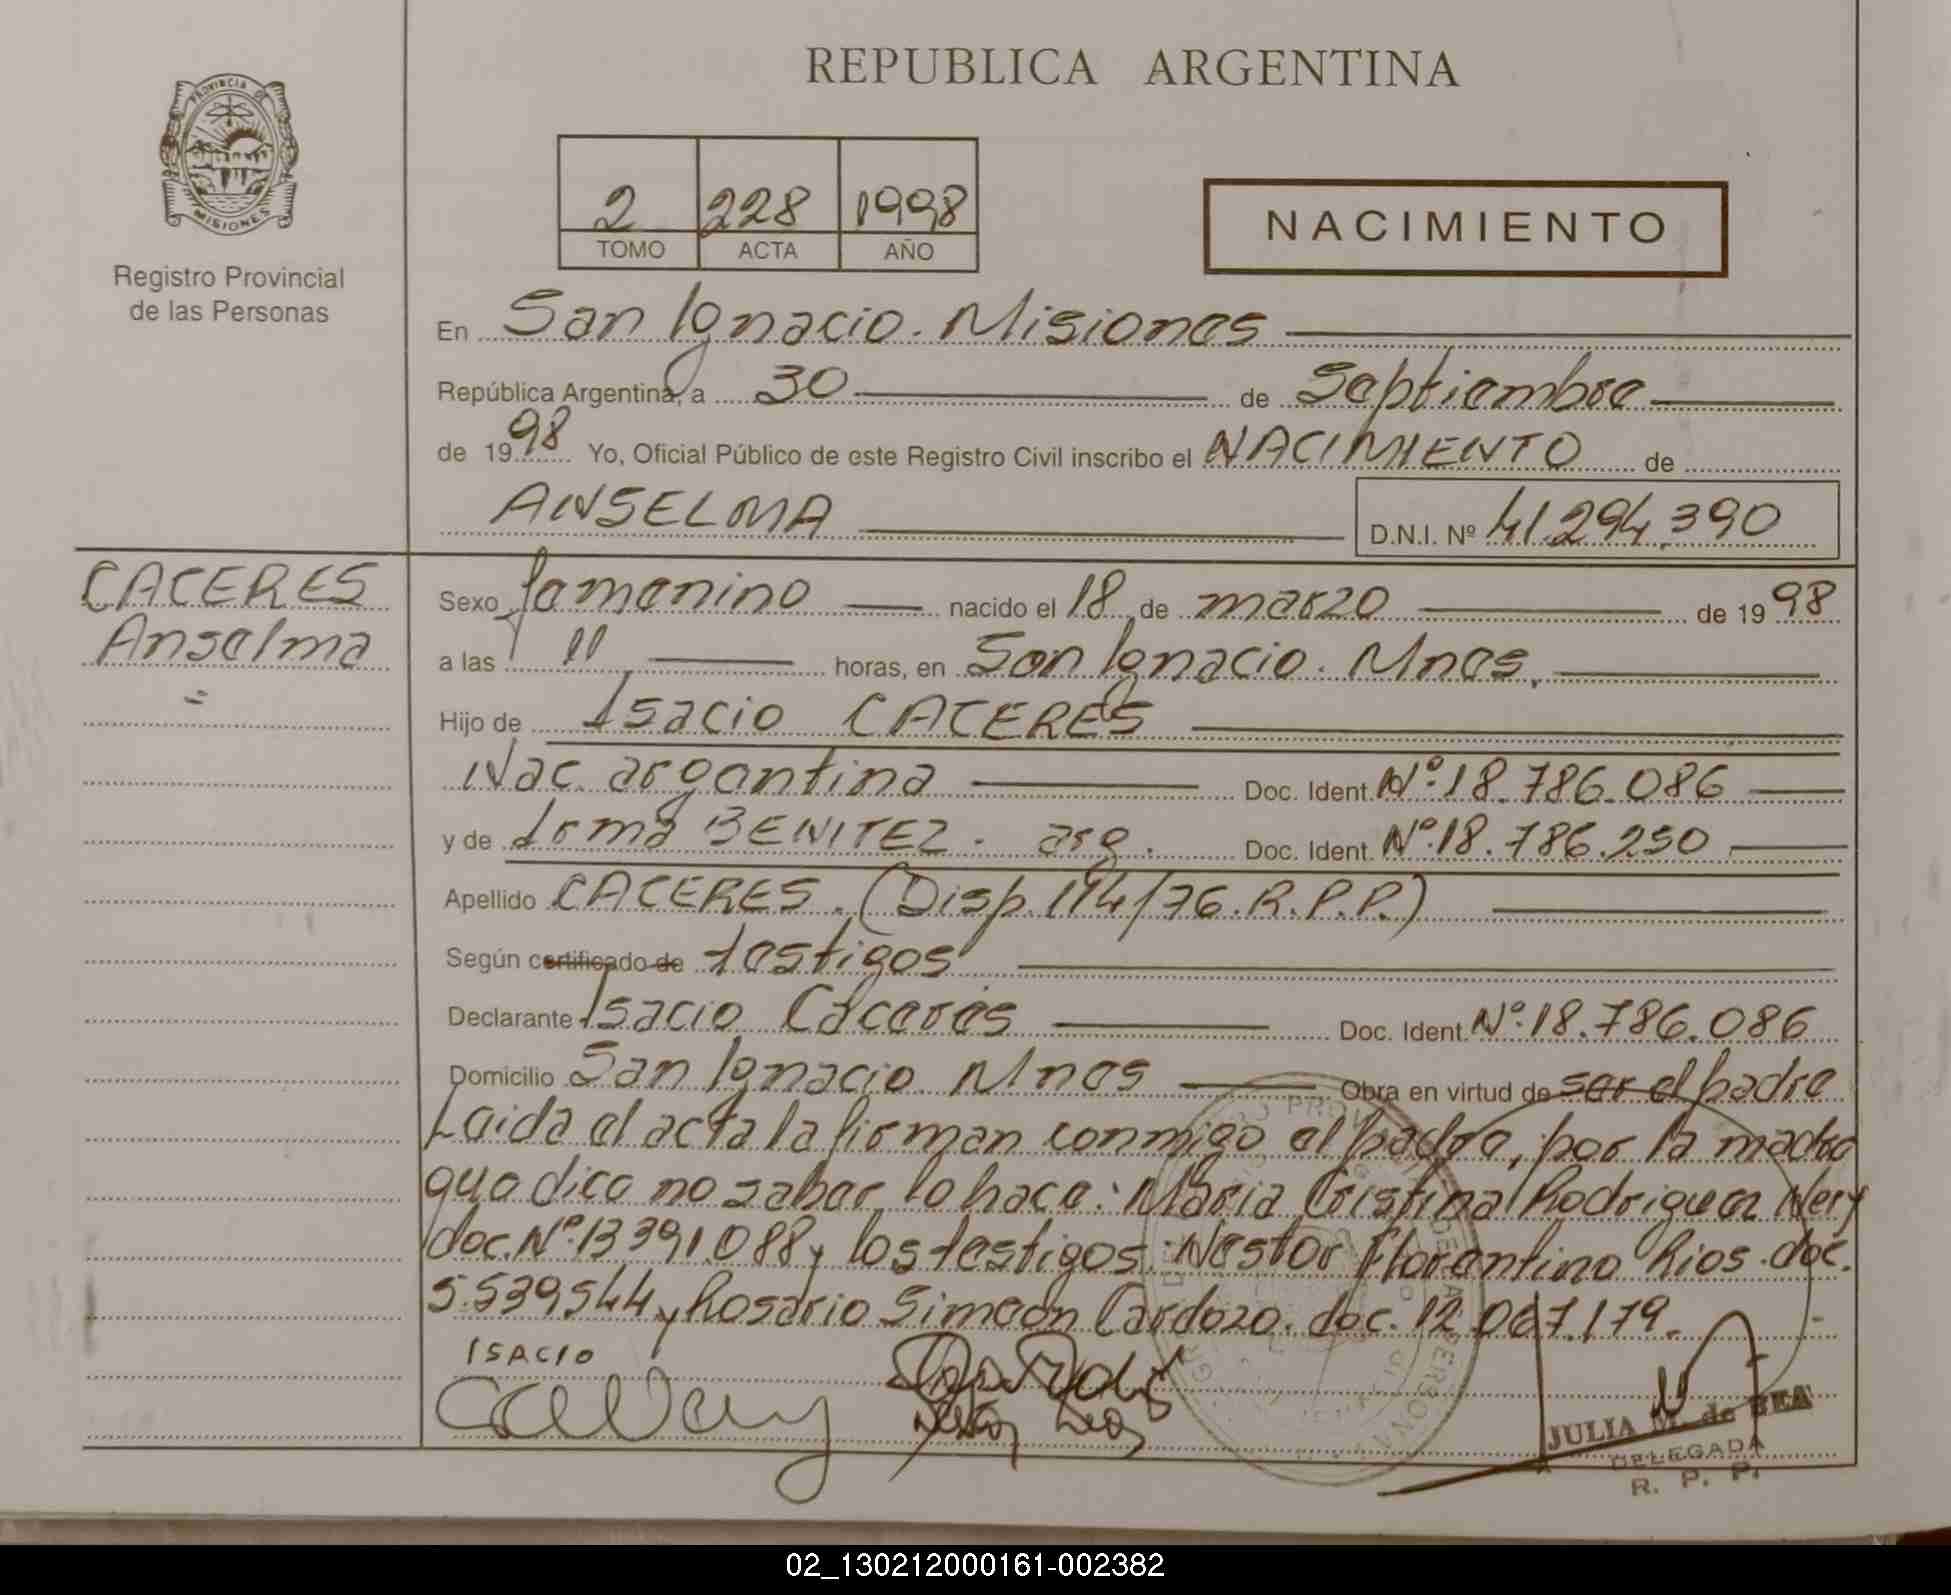 REPUBLICA ARGENTINA
PROVINCIA DE
MISIONES
Registro Provincial
de las Personas
2 228 1998
TOMO ACTA AÑO
NACIMIENTO
En San Ignacio. Misiones
República Argentina, a 30 de Septiembre
de 1998 Yo, Oficial Público de este Registro Civil inscribo el NACIMIENTO de
ANSELMA D.N.I. Nº 41.294.390
CACERES
Anselma
Sexo femenino nacido el 18 de marzo de 1998
a las 11 horas, en San Ignacio. Mnes.
Hijo de Isacio CACERES
Nac. argentina Doc. Ident. Nº.18.786.086
y de Irma BENITEZ. arg. Doc. Ident. Nº.18.786.250
Apellido CACERES. (Disp. 114/76. R.P.P.)
Según certificado de testigos
Declarante Isacio Cáceres Doc. Ident. Nº.18.786.086
Domicilio San Ignacio Mnes Obra en virtud de ser el padre
Leida el acta la firman conmigo el padre, por la madre
que dice no saber lo hace: Maria Cristina Rodriguez Nery
doc. Nº.13391.088 y los testigos: Nestor Florentino Rios. doc.
5.539544 y Rosario Simeón Cardozo. doc. 12.067.179.
ISACIO
JULIA M. de BEA
DELEGADA
R. P. P.
02_130212000161-002382